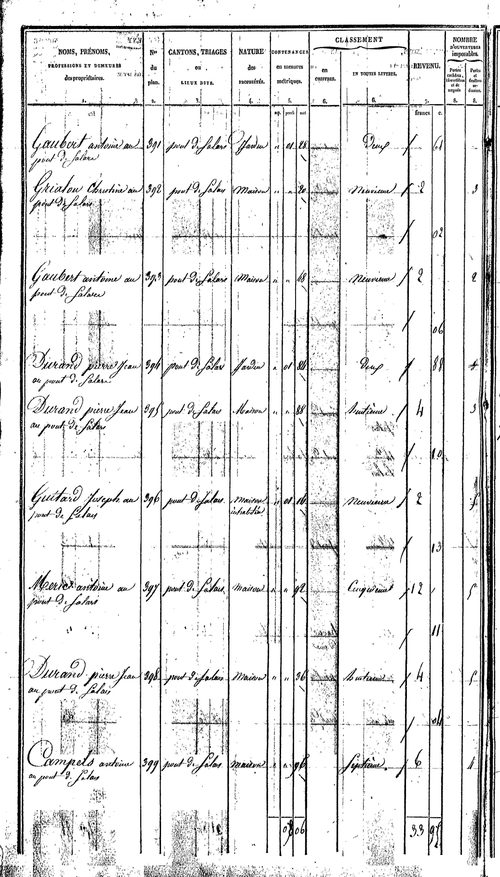 NOMS, PRÉNOMS, PROFESSIONS ET DEMEURES des propriétaires.
Nos du plan.
CANTONS, TRIAGES ou LIEUX DITS.
NATURE des PROPRIÉTÉS.
CONTENANCES en mesures métriques.
CLASSEMENT
en chiffres.
EN TOUTES LETTRES.
REVENU.
NOMBRE D'OUVERTURES imposables.
1. 2. 3. 4. 5. 6. 6. 7. 8. 8.
francs c.
Gaubert antoine au 391 pont de Salars Jardin " 01 28 Deux / 61
pont de Salars
Grialou Christine au 392 pont de Salars Maison " " 20 Neuvieme / 2 3
pont de Salars
/ 02
Gaubert antoine au 393 pont de Salars Maison " " 48 Neuvieme / 2 2
pont de Salars
/ 06
Durand pierre Jean 394 pont de Salars Jardin " 01 84 Deux / 88
au pont de Salars
Durand pierre Jean 395 pont de Salars Maison " " 88 huitième / 4 3
au pont de Salars
/ 10
Guitard Joseph au 396 pont de Salars Maison " 01 16 Neuvieme / 2
pont de Salars
/ 13
Meric antoine au 397 pont de Salars Maison " " 92 Cinquieme / 12 5
pont de Salars
/ 11
Durand pierre Jean 398 pont de Salars Maison " " 36 huitieme / 4 5
au pont de Salars
/ 04
Campels antoine 399 pont de Salars Maison " " 96 Septième / 6 4
au pont de Salars
06 33 97